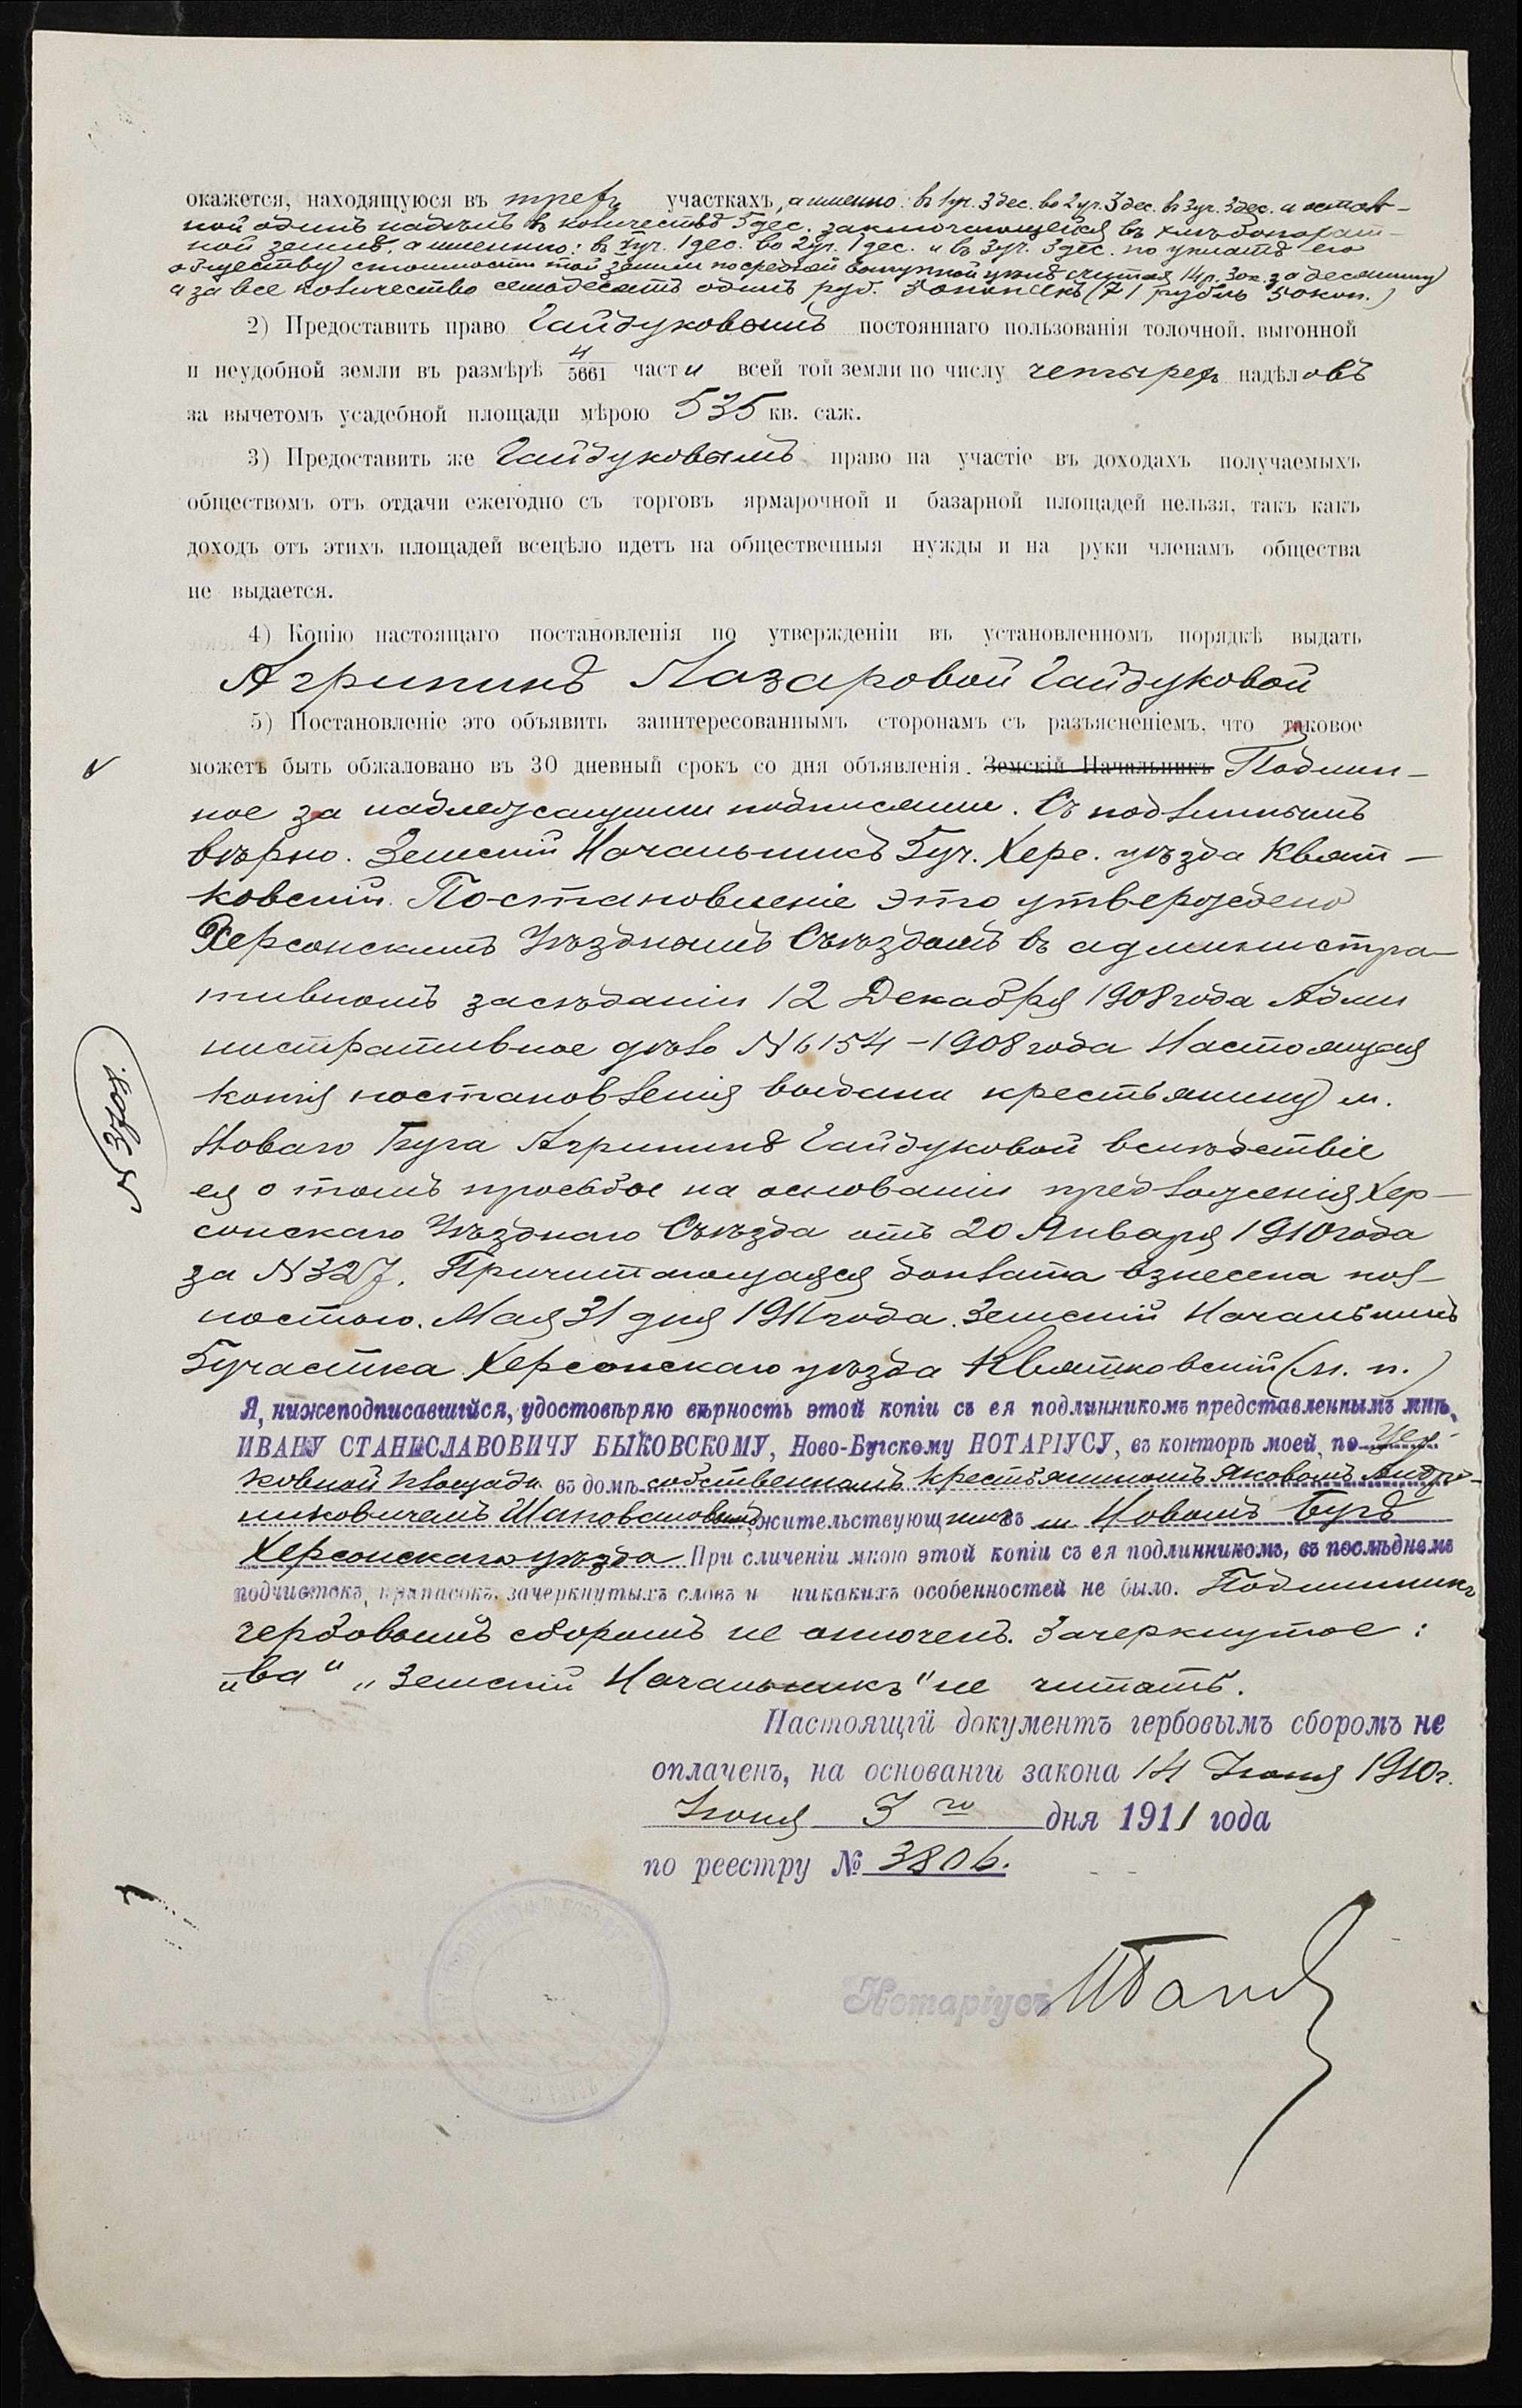 окажется, находящуюся въ трехъ участкахъ, а именно: въ 1уч. 3 дес. во 2 уч. 3 дес. въ 3 уч. 3 дес. и остав-
ной одинъ надѣлъ въ количествѣ 5 дес. заключающейся въ хлѣбопахат-
ной землѣ, а именно: въ 1уч. 1 дес. во 2уч. 1 дес. и въ 3уч. 3 дес. по уплатѣ его
обществу стоимости той земли по средней выкупной цѣнѣ считая 14 р. 30 к. за десятину
а за все количество семьдесятъ одинъ руб. 50 копѣекъ (71 рубль 50 коп.)
2) Предоставить право Гайдуковымъ постояннаго пользованія толочной, выгонной
и неудобной земли въ размѣрѣ 4/5661 части всей той земли по числу четырехъ надѣловъ
за вычетомъ усадебной площади мѣрою 535 кв. саж.
3) Предоставить же Гайдуковымъ право на участіе въ доходахъ получаемыхъ
обществомъ отъ отдачи ежегодно съ торговъ ярмарочной и базарной площадей нельзя, такъ какъ
доходъ отъ этихъ площадей всецѣло идетъ на общественныя нужды и на руки членамъ общества
не выдается.
4) Копію настоящаго постановленія по утвержденіи въ установленномъ порядкѣ выдать
Агрипинѣ Лазаровой Гайдуковой
5) Постановленіе это объявить заинтересованнымъ сторонамъ съ разъясненіемъ, что таковое
можетъ быть обжаловано въ 30 дневный срокъ со дня объявленія. Земскій Начальникъ Подлин-
ное за надлежащими подписями. Съ подлиннымъ
вѣрно. Земскій Начальникъ 5уч. Херс. уѣзда Квят-
ковскій. Постановленіе это утверждено
Херсонскимъ Уѣзднымъ Съѣздомъ въ администра-
тивномъ засѣданіи 12 Декабря 1908 года Адми
нистративное дѣло № 6154-1908 года Настоящая
копія постановленія выдана крестьянину м.
Новаго Буга Агрипинѣ Гайдуковой вслѣдствіе
ея о томъ просьбы на основаніи предложенія Хер-
сонскаго Уѣзднаго Съѣзда отъ 20 Января 1910 года
за № 327. Причитающаяся доплата взнесена пол-
ностью. Мая 31 дня 1911 года. Земскій Начальникъ
5участка Херсонскаго уѣзда Квятковскій (м. п.)
Я, нижеподписавшійся, удостовѣряю вѣрность этой копіи съ ея подлинникомъ представленнымъ мнѣ,
ИВАНУ СТАНИСЛАВОВИЧУ БЫКОВСКОМУ, Ново-Бугскому НОТАРІУСУ, въ конторѣ моей, по Цер-
ковной площади въ домѣ собственномъ крестьяниномъ Яковомъ
жительствующимъ въ м. Новомъ Бугѣ
Херсонскаго уѣзда При сличеніи мною этой копіи съ ея подлинникомъ, въ послѣднемъ
подчистокъ, приписокъ, зачеркнутыхъ словъ и никакихъ особенностей не было. Подлинникъ
гербовымъ сборомъ не оплоченъ. Зачеркнутое:
„ва" „Земскій Начальникъ" не читать.
Настоящій документъ гербовымъ сборомъ не
оплаченъ, на основаніи закона 14 Іюня 1910 г.
Іюня 3 го дня 1911 года
по реестру № 3806.
Нотаріусъ